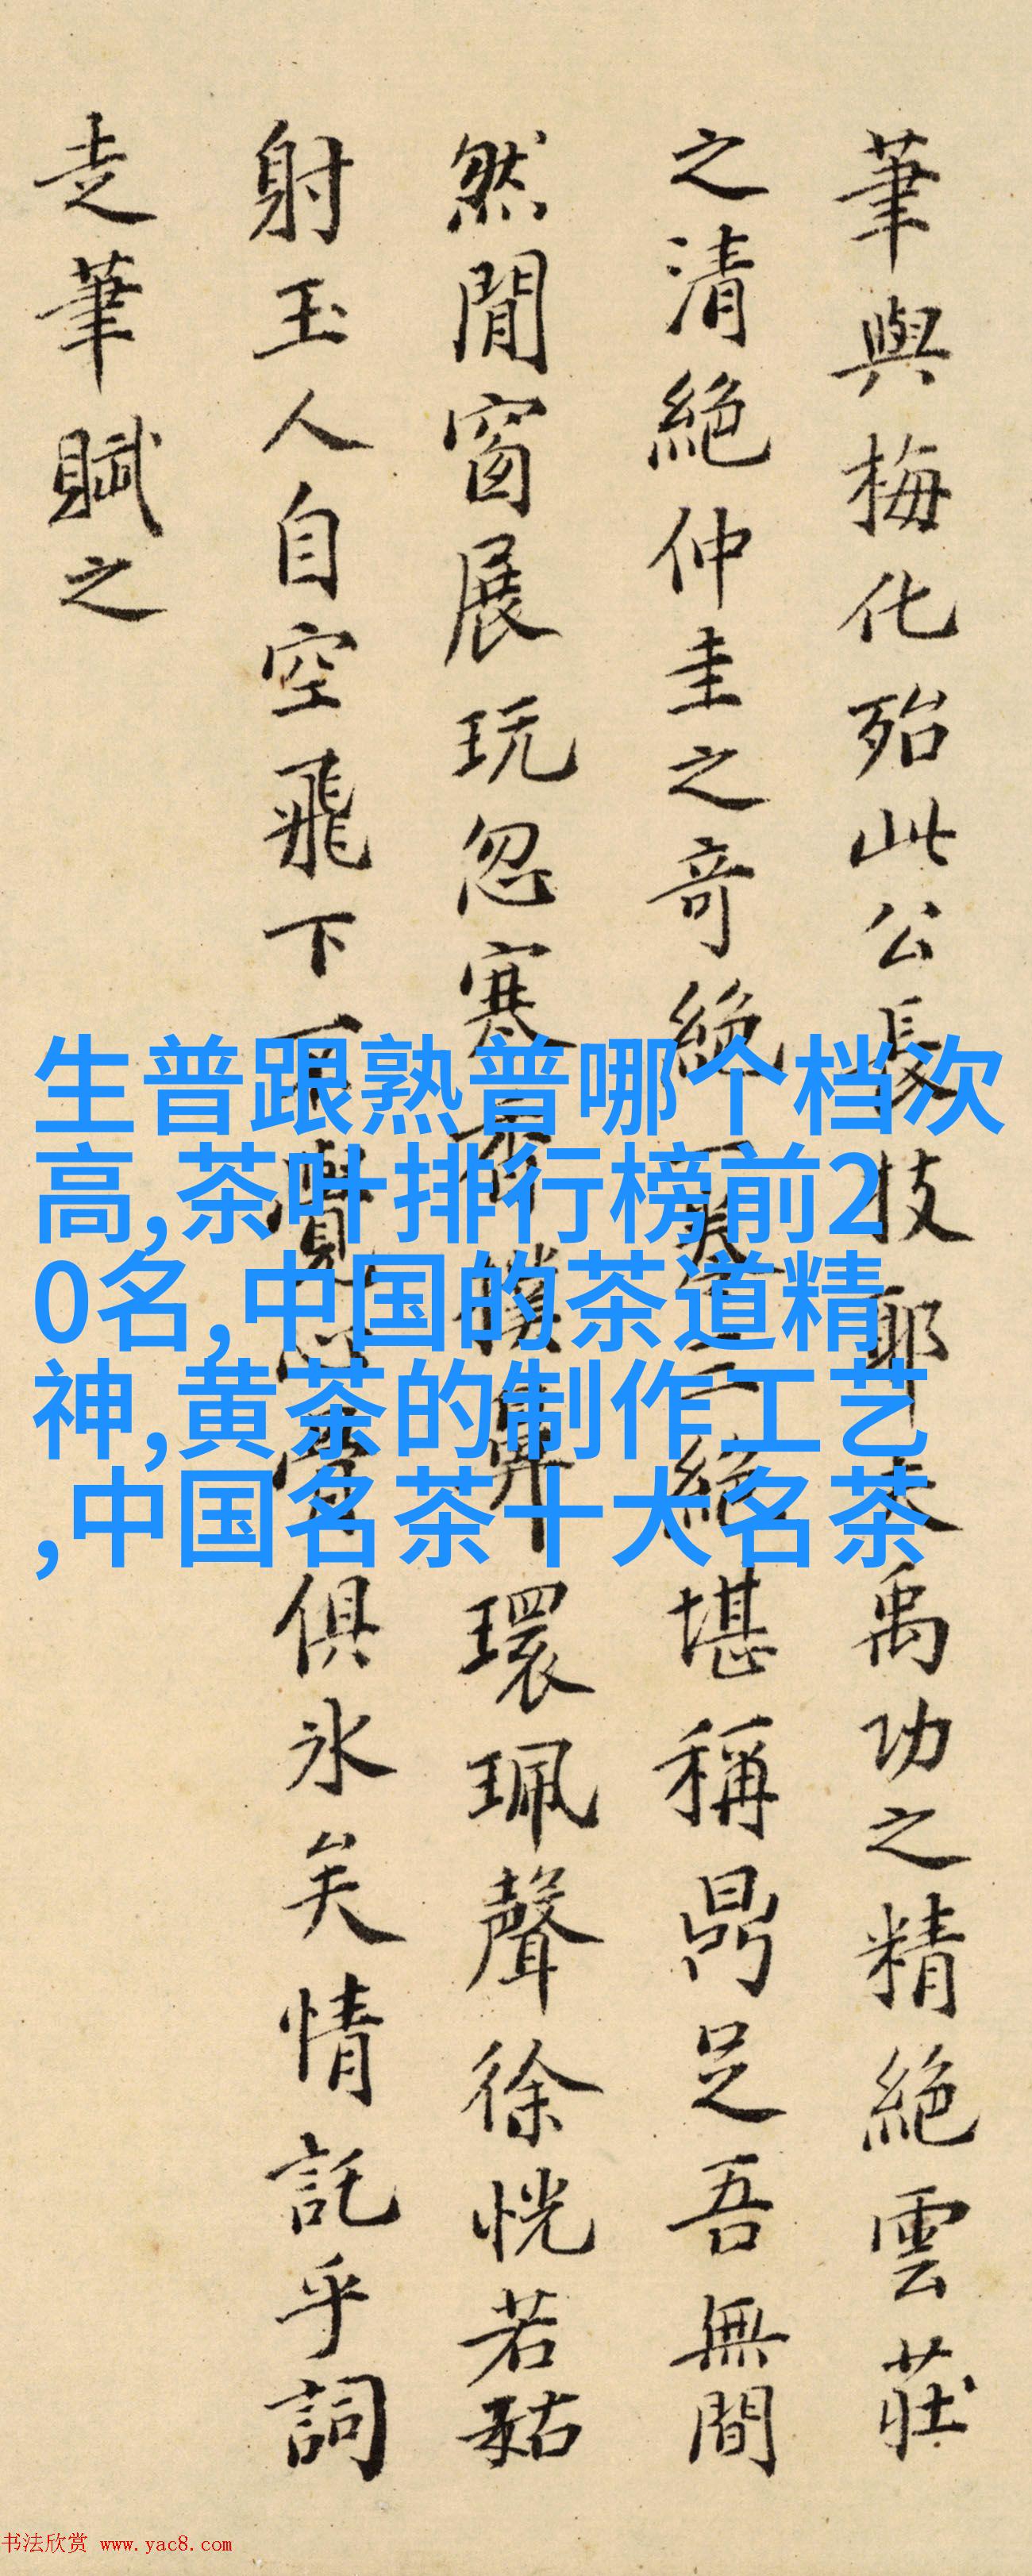 筆與梅化殆此公長技耶夫禹功之精絕雲莊
之清絕仲圭之奇絕一三絕堪稱鼎足吾無間
然閒窗展玩忽寒香撲鼻環珮聲徐恍若姑
射玉人自空飛下不覺心俱冰矣情託乎詞
走筆賦之
生普跟熟普哪个档次
高,茶叶排行榜前2
0名,中国的茶道精
神,黄茶的制作工艺
,中国名茶十大名茶
书法欣赏 www.yac8.com